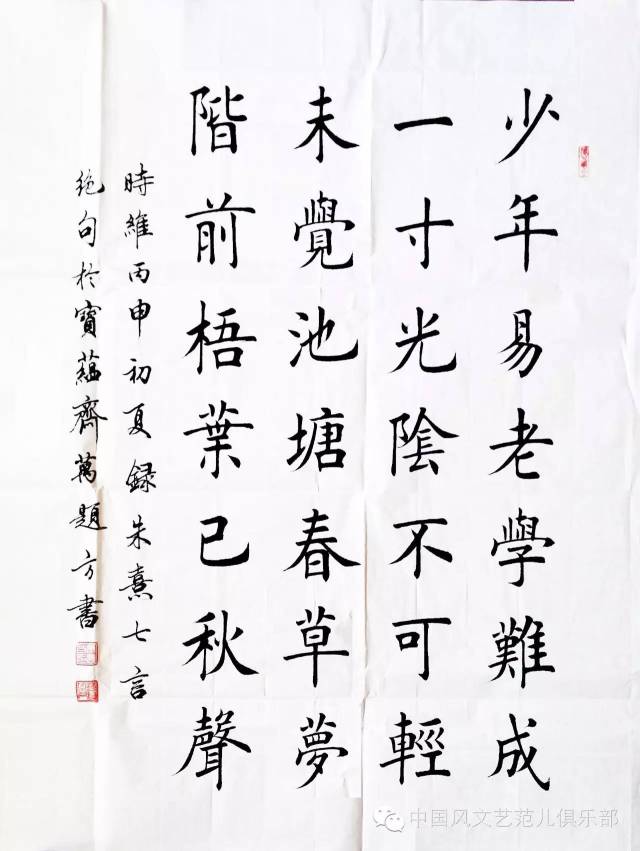 少年易老學難成
一寸光陰不可輕
未覺池塘春草夢
階前梧葉已秋聲
時維丙申初夏録朱熹七言
絶句於寶蘊齋萬題方書
中国风文艺范儿俱乐部